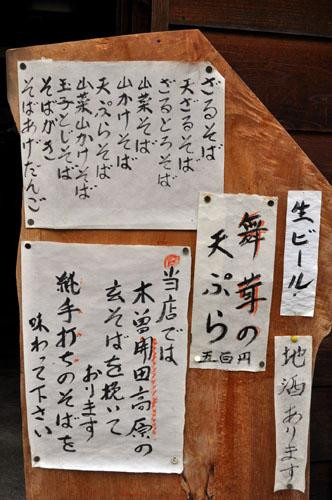 ざるそば
天ざるそば
ざるとろそば
山菜そば
山かけそば
天ぷらそば
山菜山かけそば
玉子とじそば
そばがき
そばあげだんご
生ビール
舞茸の
天ぷら
五百円
地酒あります
当店では
木曽開田高原の
玄そばを挽いて
おります
純手打ちのそばを
味わって下さい